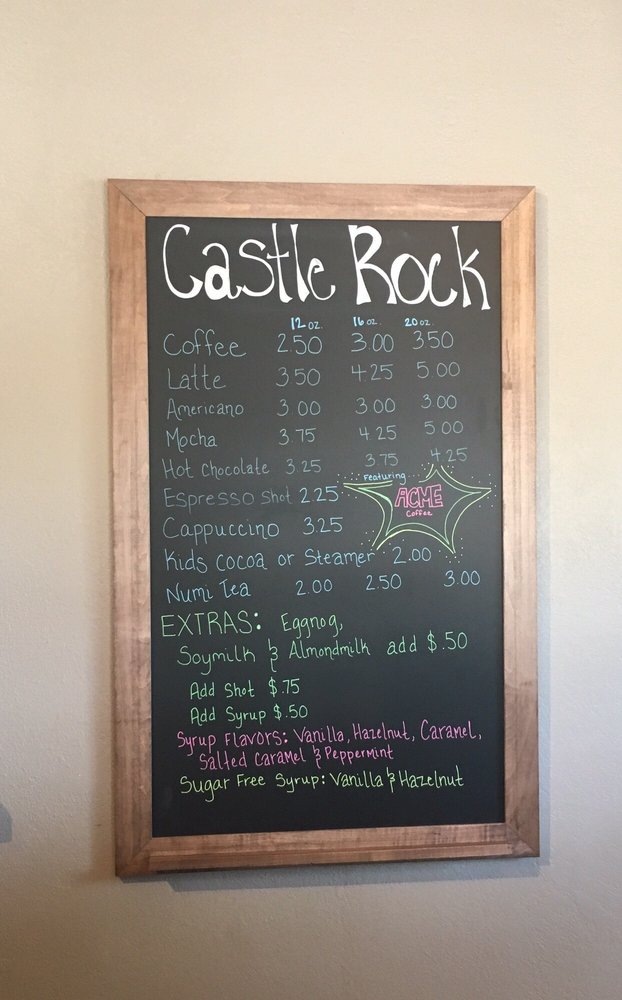 Castle Rock
12 oz. 16 oz. 20 oz.
Coffee 2.50 3.00 3.50
Latte 3.50 4.25 5.00
Americano 3.00 3.00 3.00
Mocha 3.75 4.25 5.00
Hot Chocolate 3.25 3.75 4.25
Featuring
Espresso Shot 2.25 ACME
Coffee
Cappuccino 3.25
Kids Cocoa or Steamer 2.00
Numi Tea 2.00 2.50 3.00
EXTRAS: Eggnog,
Soymilk & Almondmilk add $.50
Add Shot $.75
Add Syrup $.50
Syrup Flavors: Vanilla, Hazelnut, Caramel,
Salted Caramel & Peppermint
Sugar Free Syrup: Vanilla & Hazelnut